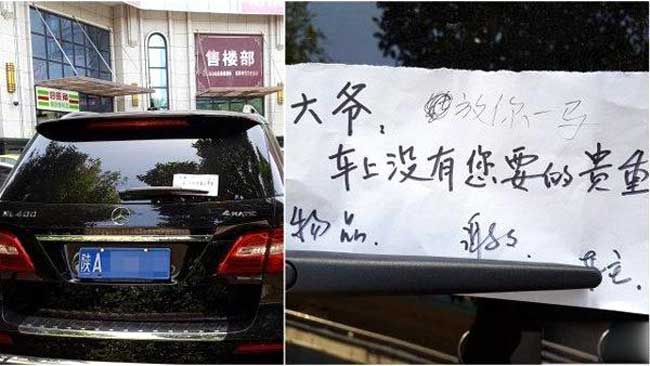 售楼部
ML400
4MATIC
陕A
大爷， 放你一马
车上没有您要的贵重
物品. 谢谢.
车主.